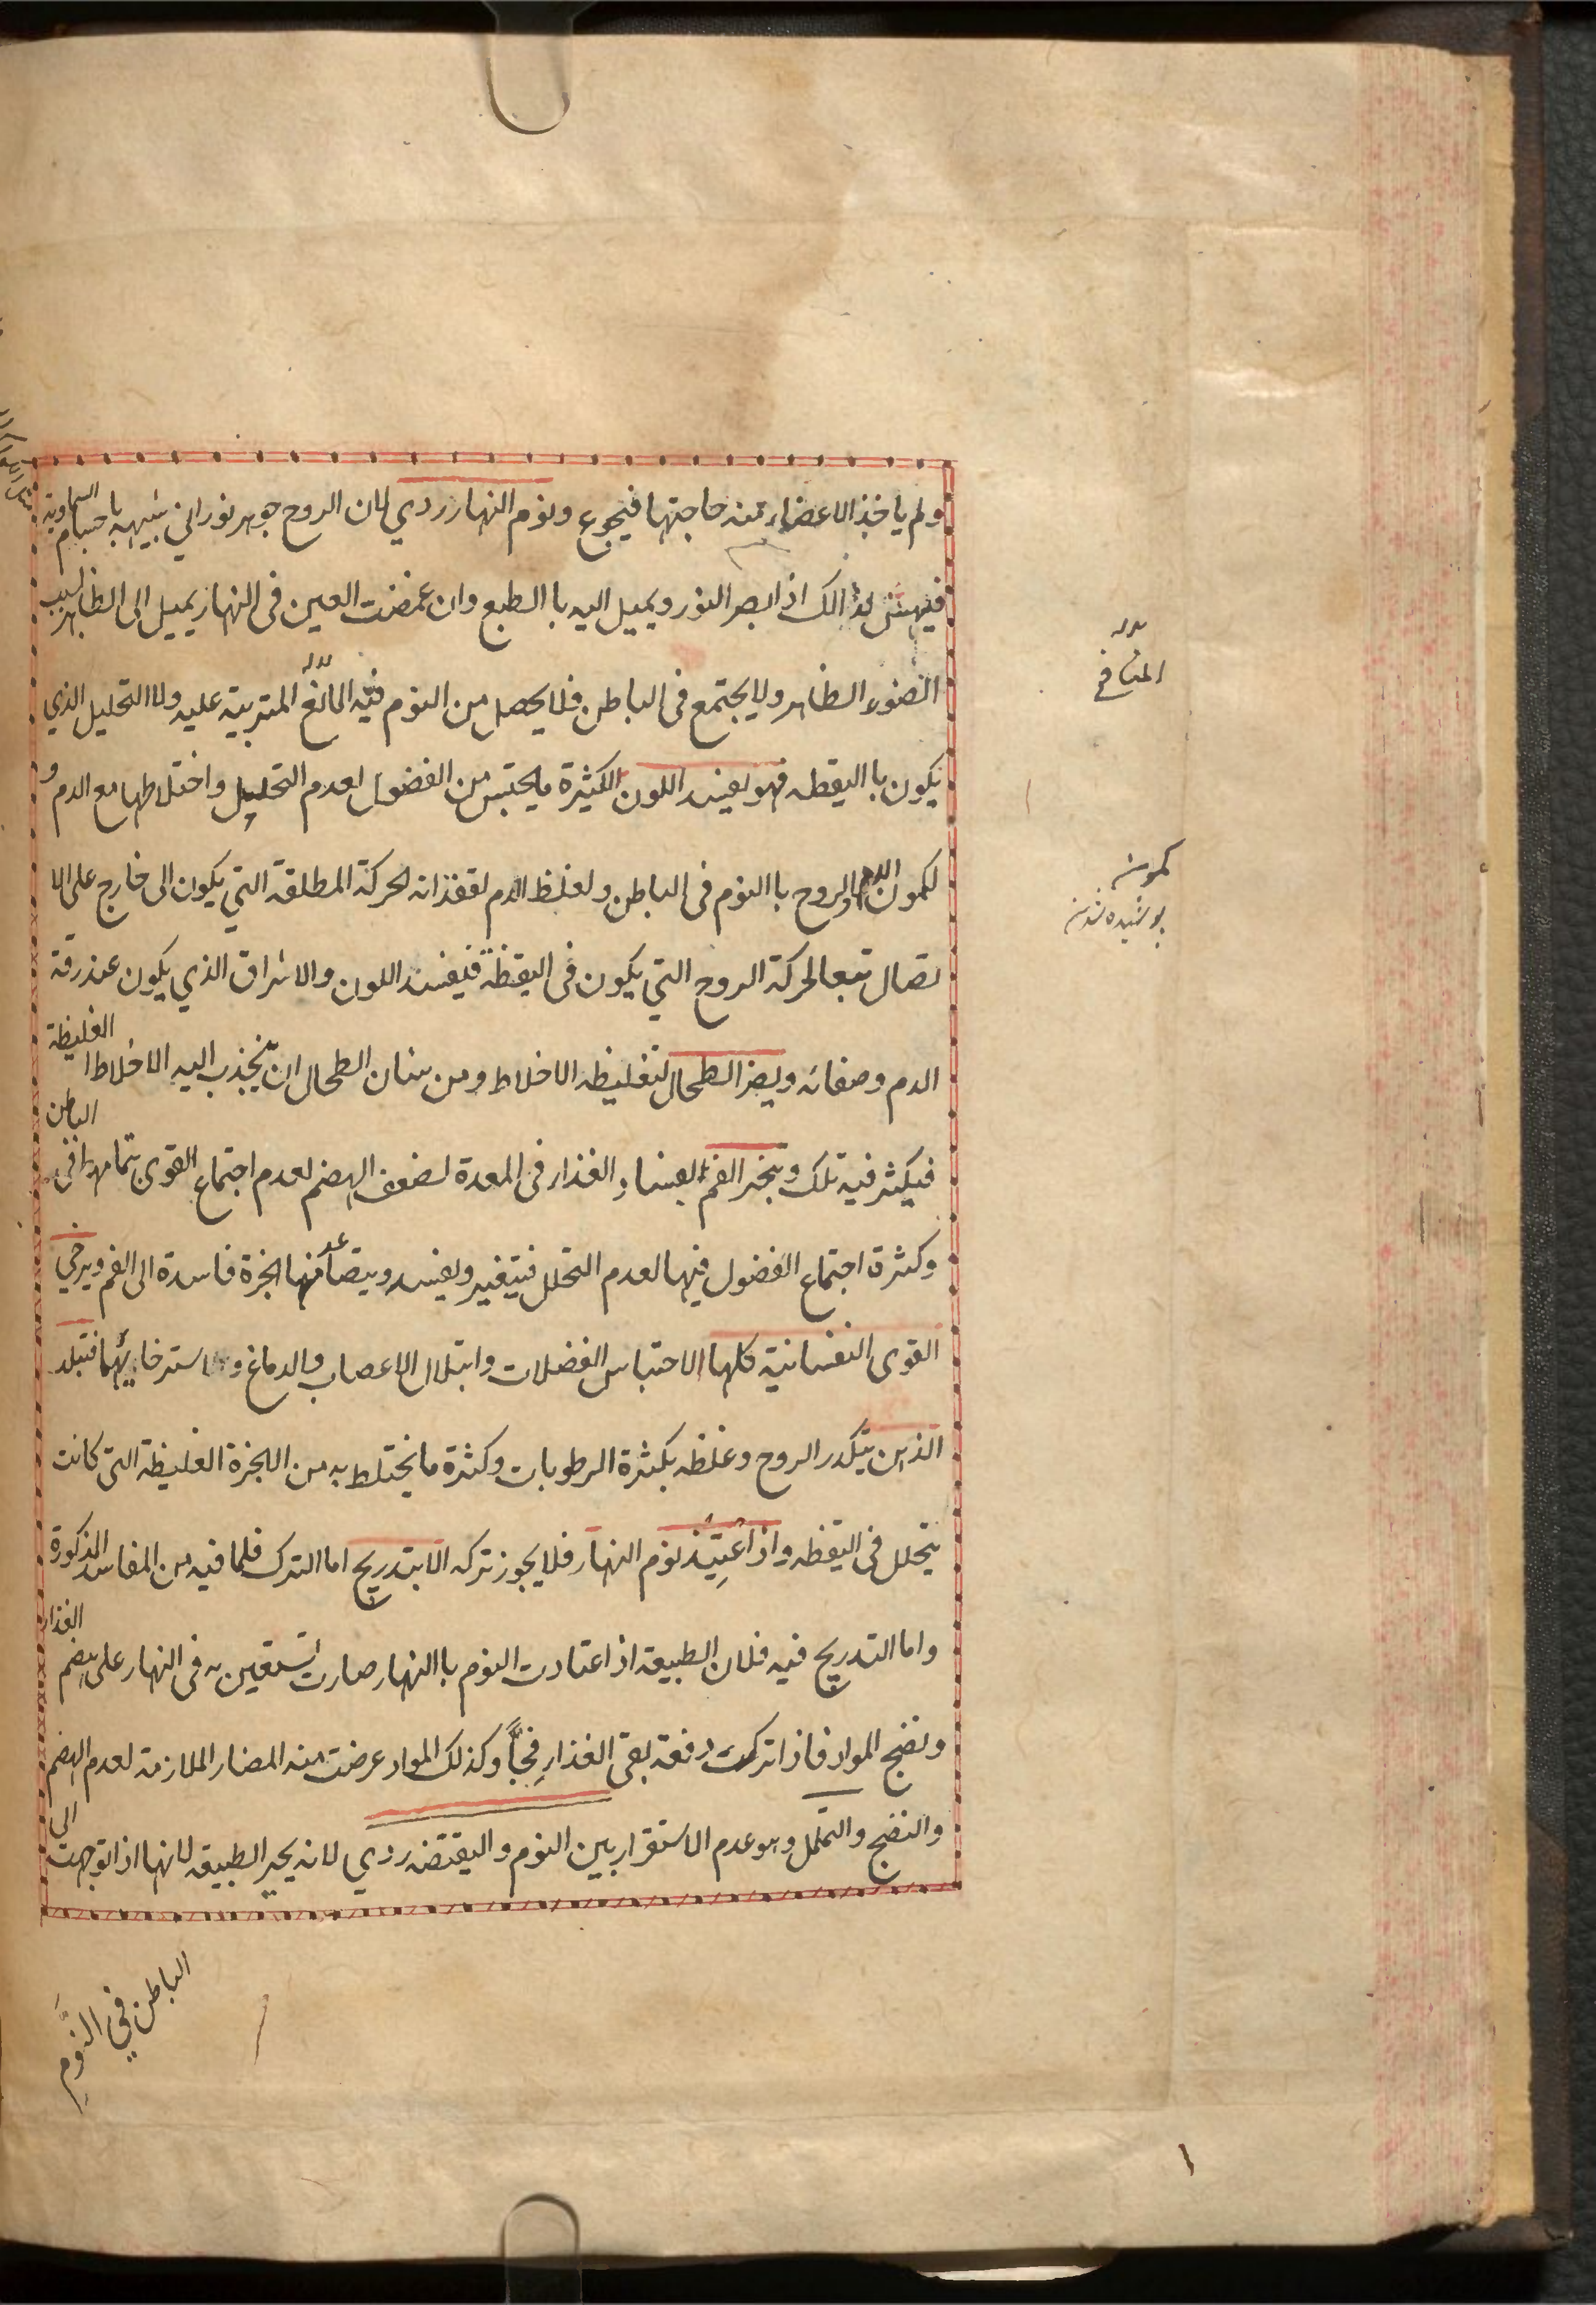 ولم ياخذ الاعضاء منه حاجتها فيجوع ونوم النهار ردي لان الروح جوهر نوراني شبيه با جسام السماوية
فيهش لذالك اذا ابصر النور ويميل اليه با الطبع وان غمضت العين في النهار يميل الى الظاهر لسبب
الضوء الظاهر ولا يجتمع في الباطن فلا يحصل من النوم فيه المنافع المترتبة عليه ولا التحليل الذي
يكون با اليقظه فهو يفسد اللون الكثيرة ما يحتبس من الفضول لعدم التحليل واختلاطها مع الدم و
لكمون الدم والروح با النوم في الباطن ولغلظ الدم لفقدانه لحركة المطلقة التي يكون الى خارج على الا
تصال تبعا لحركة الروح التي يكون في اليقظة فيفسد اللون والاشراق الذي يكون عند رقة
الدم وصفائه ويضر الطحال لتغليظه الاخلاط ومن شان الطحال ان ينجذب اليه الاخلاط الغليظة
فيكثر فيه تلك ويبخر الفم لفساد الغذاء في المعدة لضعف الهضم لعدم اجتماع القوى بتمامها في الباطن
وكثرة اجتماع الفضول فيها لعدم التحلل فيتغير ويفسد ويتصاعد منها ابخرة فاسدة الى الفم ويرخي
القوى النفسانية كلها الاحتباس الفضلات وابتلال الاعصاب والدماغ و استرخائهما فتبلد
الذهن بتكدر الروح وغلظه بكثرة الرطوبات وكثرة ما يختلط به من الابخرة الغليظة التي كانت
يتحلل في اليقظه واذا اعتيد نوم النهار فلا يجوز تركه الا بتدريج اما الترك فلما فيه من المفاسد المذكورة
واما التدريج فيه فلان الطبيعة اذا اعتادت النوم با النهار صارت تستعين به في النهار على هضم الغذاء
ونضج المواد فاذا تركت دفعة بقى الغذاء فجًّا وكذلك المواد عرضت منه المضار الملازمة لعدم الهضم
والنضج والتململ وهو عدم الاستقرار بين النوم واليقتضه ردي لانه يحير الطبيعة لانها اذا توجهت الى
الباطن في النَّومِ
المنافع
كمون
پوشيده شدن
١